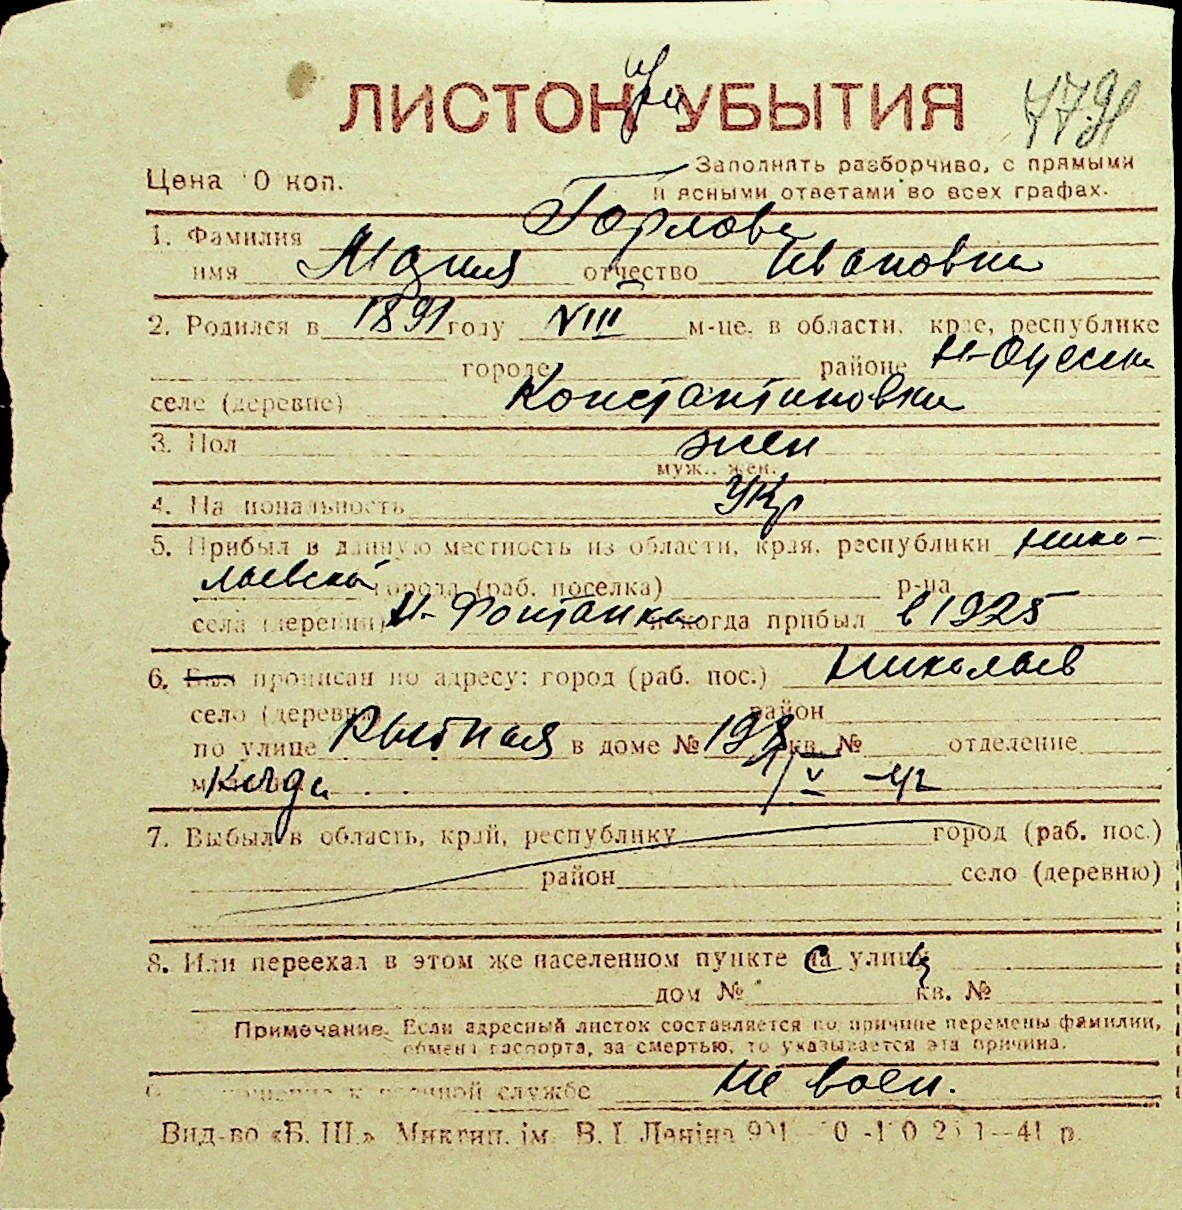 при
ЛИСТОК УБЫТИЯ
Цена 10 коп.
Заполнять разборчиво, с прямыми
и ясными ответами во всех графах.
1. Фамилия Горлова
имя Мария отчество Ивановна
2. Родился в 1891 году VIII м-це, в области, крае, республике
городе районе Н-Одесск
селе (деревне) Константиновка
3. Пол жен
муж., жен.
4. Национальность Укр
5. Прибыл в данную местность из области, края, республики Нико-
лаевской города (раб. поселка) р-на
села (деревни) Фонтанка и когда прибыл в 1925
6. Был прописан по адресу: город (раб. пос.) Николаев
село (деревня) район
по улице Рыбная в доме № кв. № отделение
когда V -42
7. Выбыл в область, край, республику город (раб. пос.)
район село (деревню)
8. Или переехал в этом же населенном пункте на улицу
дом № кв. №
Примечание. Если адресный листок составляется по причине перемены фамилии,
обмена паспорта, за смертью, то указывается эта причина.
военной службе Не воен.
Вид-во «Б. Ш.» Микгип. ім. В. І. Леніна